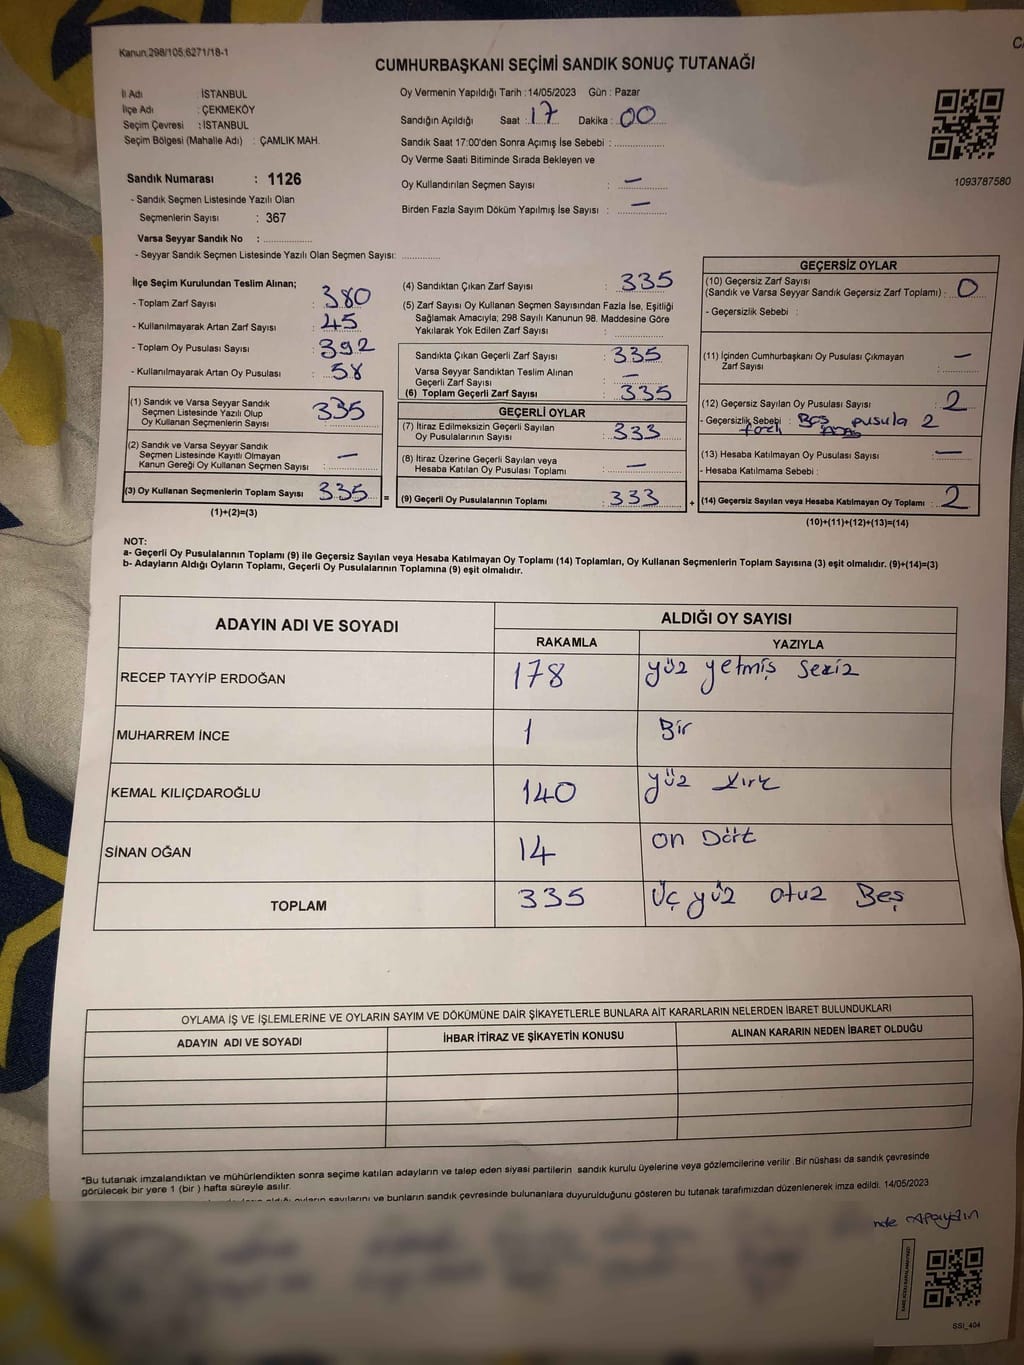 Kanun:298/105;6271/18-1
CUMHURBAŞKANI SEÇİMİ SANDIK SONUÇ TUTANAĞI
İl Adı : İSTANBUL
İlçe Adı : ÇEKMEKÖY
Seçim Çevresi : İSTANBUL
Seçim Bölgesi (Mahalle Adı) : ÇAMLIK MAH.
Sandık Numarası : 1126
- Sandık Seçmen Listesinde Yazılı Olan
Seçmenlerin Sayısı : 367
Varsa Seyyar Sandık No : ..............
- Seyyar Sandık Seçmen Listesinde Yazılı Olan Seçmen Sayısı: ..............
Oy Vermenin Yapıldığı Tarih : 14/05/2023 Gün : Pazar
Sandığın Açıldığı Saat : 17 Dakika : 00
Sandık Saat 17:00'den Sonra Açımış İse Sebebi : ..............
Oy Verme Saati Bitiminde Sırada Bekleyen ve
Oy Kullandırılan Seçmen Sayısı : —
Birden Fazla Sayım Döküm Yapılmış İse Sayısı : —
1093787580
İlçe Seçim Kurulundan Teslim Alınan;
- Toplam Zarf Sayısı : 380
- Kullanılmayarak Artan Zarf Sayısı : 45
- Toplam Oy Pusulası Sayısı : 392
- Kullanılmayarak Artan Oy Pusulası : 58
(1) Sandık ve Varsa Seyyar Sandık
Seçmen Listesinde Yazılı Olup
Oy Kullanan Seçmenlerin Sayısı : 335
(2) Sandık ve Varsa Seyyar Sandık
Seçmen Listesinde Kayıtlı Olmayan
Kanun Gereği Oy Kullanan Seçmen Sayısı : —
(3) Oy Kullanan Seçmenlerin Toplam Sayısı : 335 =
(1)+(2)=(3)
(4) Sandıktan Çıkan Zarf Sayısı : 335
(5) Zarf Sayısı Oy Kullanan Seçmen Sayısından Fazla İse, Eşitliği
Sağlamak Amacıyla; 298 Sayılı Kanunun 98. Maddesine Göre
Yakılarak Yok Edilen Zarf Sayısı : ..............
Sandıkta Çıkan Geçerli Zarf Sayısı : 335
Varsa Seyyar Sandıktan Teslim Alınan
Geçerli Zarf Sayısı : —
(6) Toplam Geçerli Zarf Sayısı : 335
GEÇERLİ OYLAR
(7) İtiraz Edilmeksizin Geçerli Sayılan
Oy Pusulalarının Sayısı : 333
(8) İtiraz Üzerine Geçerli Sayılan veya
Hesaba Katılan Oy Pusulası Toplamı : —
(9) Geçerli Oy Pusulalarının Toplamı : 333 +
GEÇERSİZ OYLAR
(10) Geçersiz Zarf Sayısı
(Sandık ve Varsa Seyyar Sandık Geçersiz Zarf Toplamı) : 0
- Geçersizlik Sebebi :
(11) İçinden Cumhurbaşkanı Oy Pusulası Çıkmayan
Zarf Sayısı : —
(12) Geçersiz Sayılan Oy Pusulası Sayısı : 2
- Geçersizlik Sebebi : Boş pusula 2
(13) Hesaba Katılmayan Oy Pusulası Sayısı : —
- Hesaba Katılmama Sebebi :
(14) Geçersiz Sayılan veya Hesaba Katılmayan Oy Toplamı : 2
(10)+(11)+(12)+(13)=(14)
NOT:
a- Geçerli Oy Pusulalarının Toplamı (9) ile Geçersiz Sayılan veya Hesaba Katılmayan Oy Toplamı (14) Toplamları, Oy Kullanan Seçmenlerin Toplam Sayısına (3) eşit olmalıdır. (9)+(14)=(3)
b- Adayların Aldığı Oyların Toplamı, Geçerli Oy Pusulalarının Toplamına (9) eşit olmalıdır.
ADAYIN ADI VE SOYADI ALDIĞI OY SAYISI
RAKAMLA YAZIYLA
RECEP TAYYİP ERDOĞAN 178 yüz yetmiş sekiz
MUHARREM İNCE 1 Bir
KEMAL KILIÇDAROĞLU 140 yüz kırk
SİNAN OĞAN 14 on Dört
TOPLAM 335 Üç yüz otuz Beş
OYLAMA İŞ VE İŞLEMLERİNE VE OYLARIN SAYIM VE DÖKÜMÜNE DAİR ŞİKAYETLERLE BUNLARA AİT KARARLARIN NELERDEN İBARET BULUNDUKLARI
ADAYIN ADI VE SOYADI İHBAR İTİRAZ VE ŞİKAYETİN KONUSU ALINAN KARARIN NEDEN İBARET OLDUĞU
*Bu tutanak imzalandıktan ve mühürlendikten sonra seçime katılan adayların ve talep eden siyasi partilerin sandık kurulu üyelerine veya gözlemcilerine verilir. Bir nüshası da sandık çevresinde
görülecek bir yere 1 (bir) hafta süreyle asılır.
sayılarını ve bunların sandık çevresinde bulunanlara duyurulduğunu gösteren bu tutanak tarafımızdan düzenlenerek imza edildi. 14/05/2023
SSİ_404